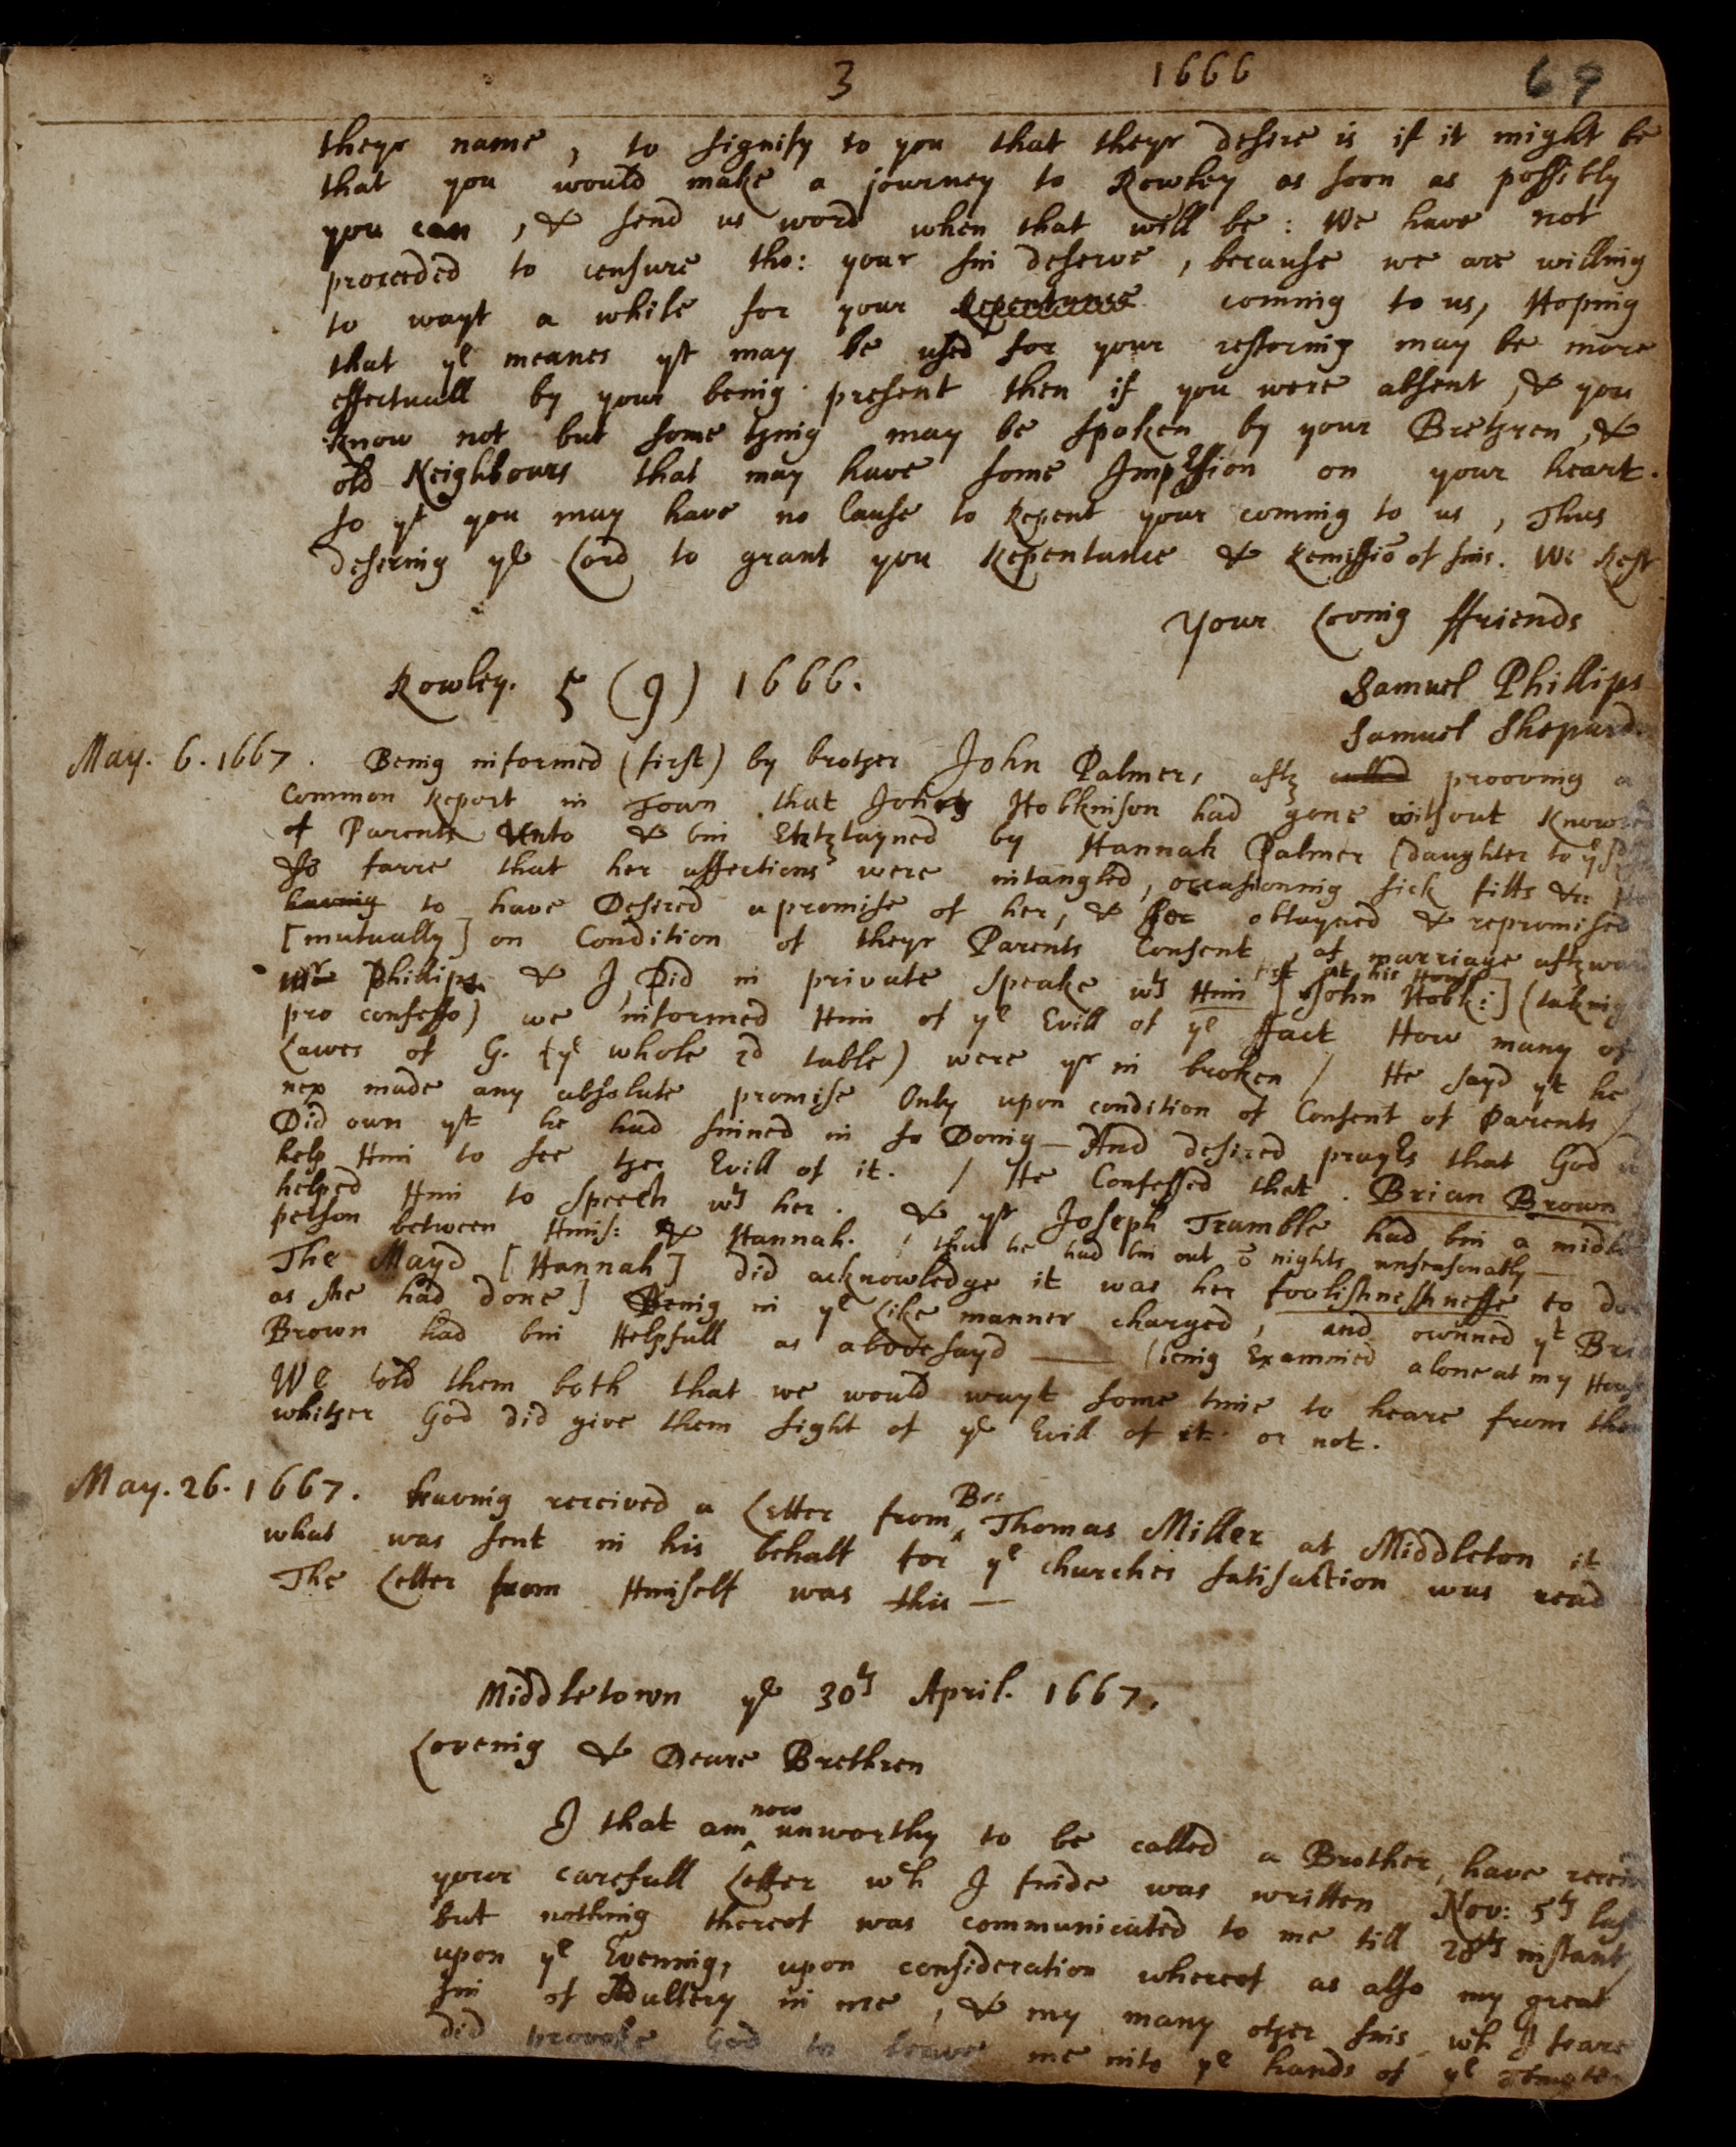 3 1666 69
theyr name, to signify to you that theyr desire is if it might be
that you would make a journey to Rowley as soon as possibly
you can, & send us word when that will be: We have not
proceeded to censure tho: your sin deserve, because we are willing
to wayt a while for your Repentance coming to us, Hoping
that ye meanes yt may be used for your restoring may be more
effectuall by your being present then if you were absent, & you
know not but some thing may be spoken by your Brethren, &
old Neighbours that may have some Impression on your heart.
so yt you may have no Cause to Repent your coming to us, Thus
desering ye Lord to grant you Repentance & Remissiō of sins. We Rest
Your Loving ffriends
Rowley. 5 (9) 1666.
Samuel Phillips
Samuel Shepard.
May. 6. 1667. Being informed (first) by brother John Palmer, after called prooving a
Common Report in Town that John Hobkinson had gone without
of Parents unto & bin Entertayned by Hannah Palmer (daughter to ye
So farre that her affections were intangled, occasioning sick fitts &c
having to have Desired a promise of her, & obtayned & repromised
[mutually] on Condition of theyr Parents Consent, of marriage
mr Phillips & I Did in private speake wth Him first at his House [John Hobk:] (taking
pro confesso) we informed Him of ye Evill of ye ffact How many of
Lawes of G. (ye whole 2d table) were yr in broken / He sayd yt he
nev made any absolute promise Only upon condition of Consent of Parents /
Did own yt he had sinned in so Doing — And desired prayers that God
help Him to see the Evill of it. / He Confessed that Brian Brown
helped Him to Speech wth her. & yt Joseph Trumble had bin a
person between Hims: & Hannah. / that he had bin out o nights unseasonably —
The Mayd [Hannah] did acknowledge it was her foolishneshnesse to
as she had done] Being in ye like manner charged, and ownned yt
Brown had bin Helpfull as abovesayd — (being Examined alone at my House
We told them both that we would wayt some time to heare from
whither God did give them sight of ye Evill of it or not.
May. 26. 1667. having received a Letter from Bro: Thomas Miller at Middleton it
what was sent in his behalf for ye churches satisfaction was read
The Letter from Himself was this —
Middletown ye 30th April. 1667.
Loveing & Deare Brethren
I that am now unworthy to be called a Brother, have
your carefull Letter wch I finde was written Nov: 5th last
but nothing thereof was communicated to me till 28th instant,
upon ye Evening, upon consideration whereof as also my great
sin of Adultery in me, & my many other sins wch I feare
did provoke God to leave me into ye hands of ye